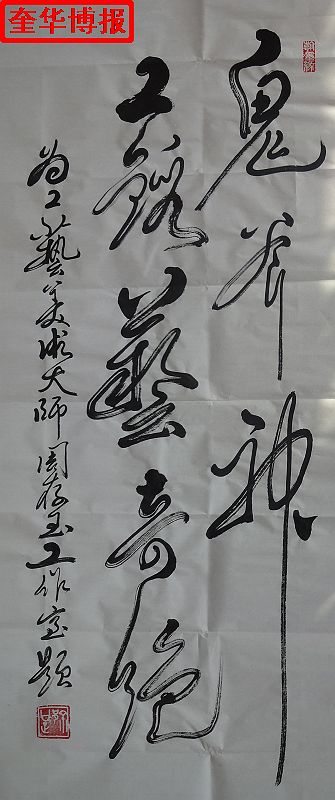 奎华博报
鬼斧神
工藝奇绝
为工藝美术大師周存玉工作室題